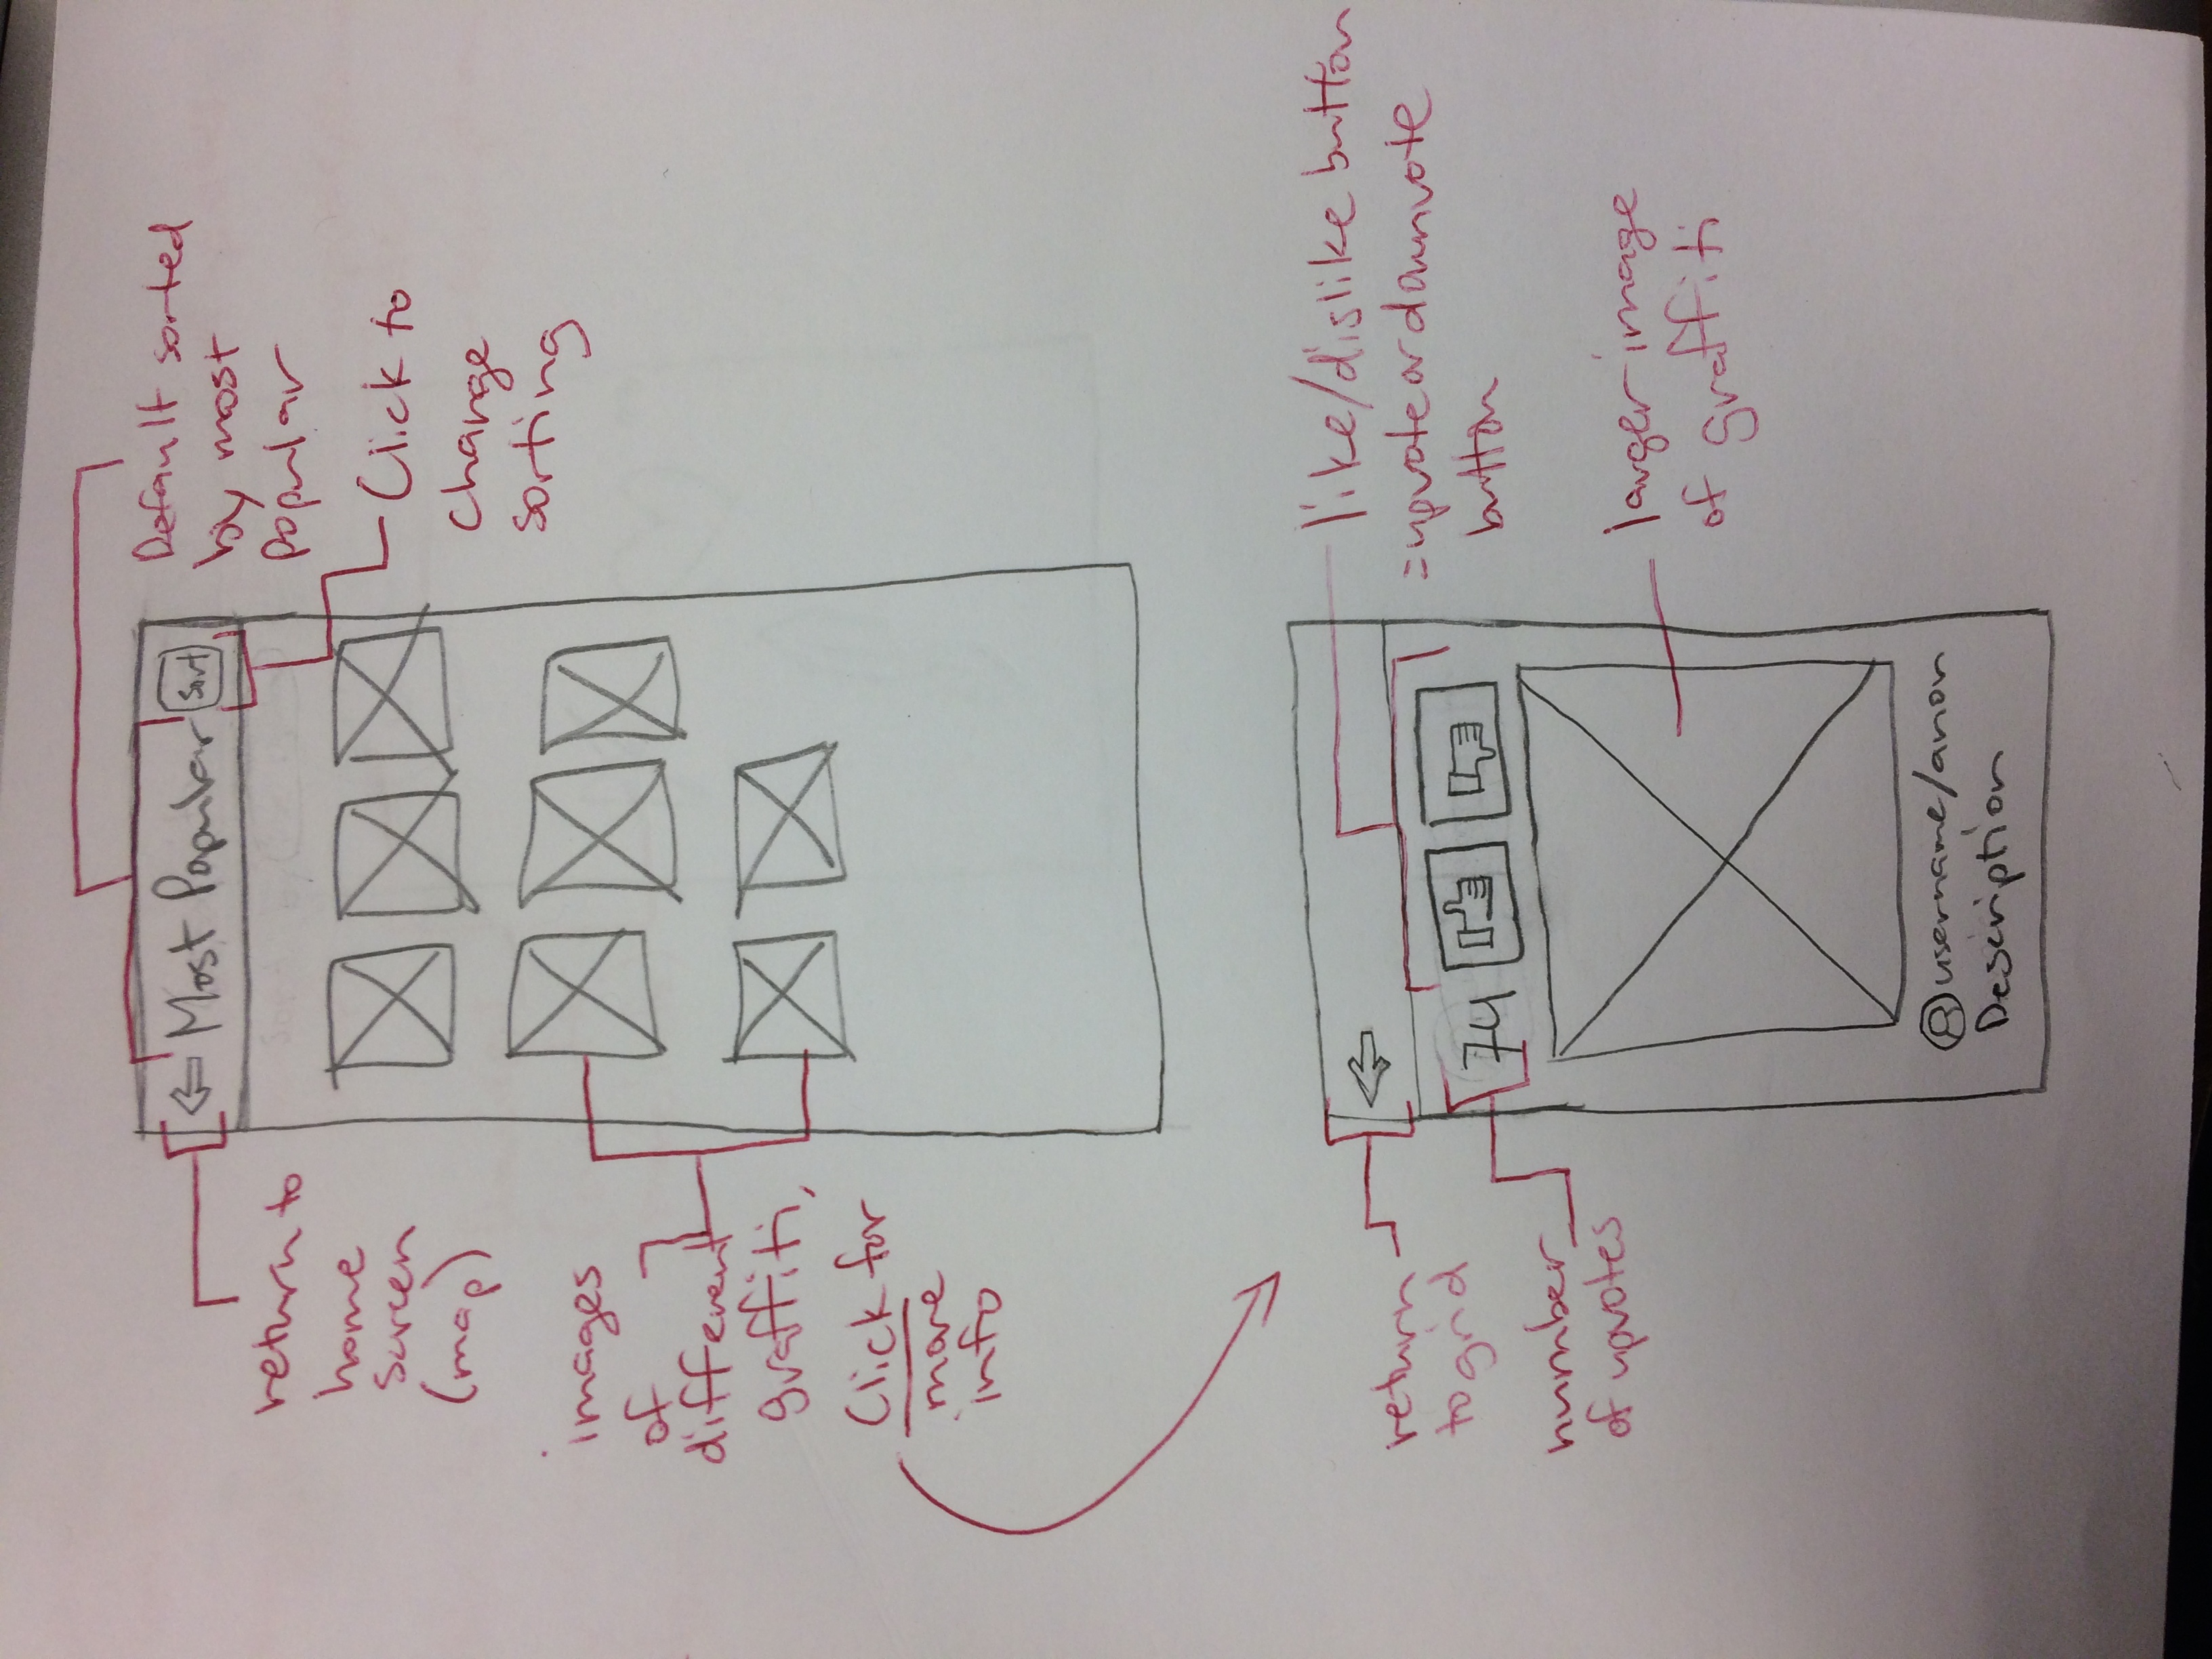 Most Popular
Sort
Default sorted
by most
Popular
return to
home
screen
(map)
Click to
change
sorting
images
of
different
graffiti,
Click for
more
info
return
to grid
like/dislike button
=upvote or downvote
button
74
number
of upvotes
larger image
of graffiti
username/anon
Description